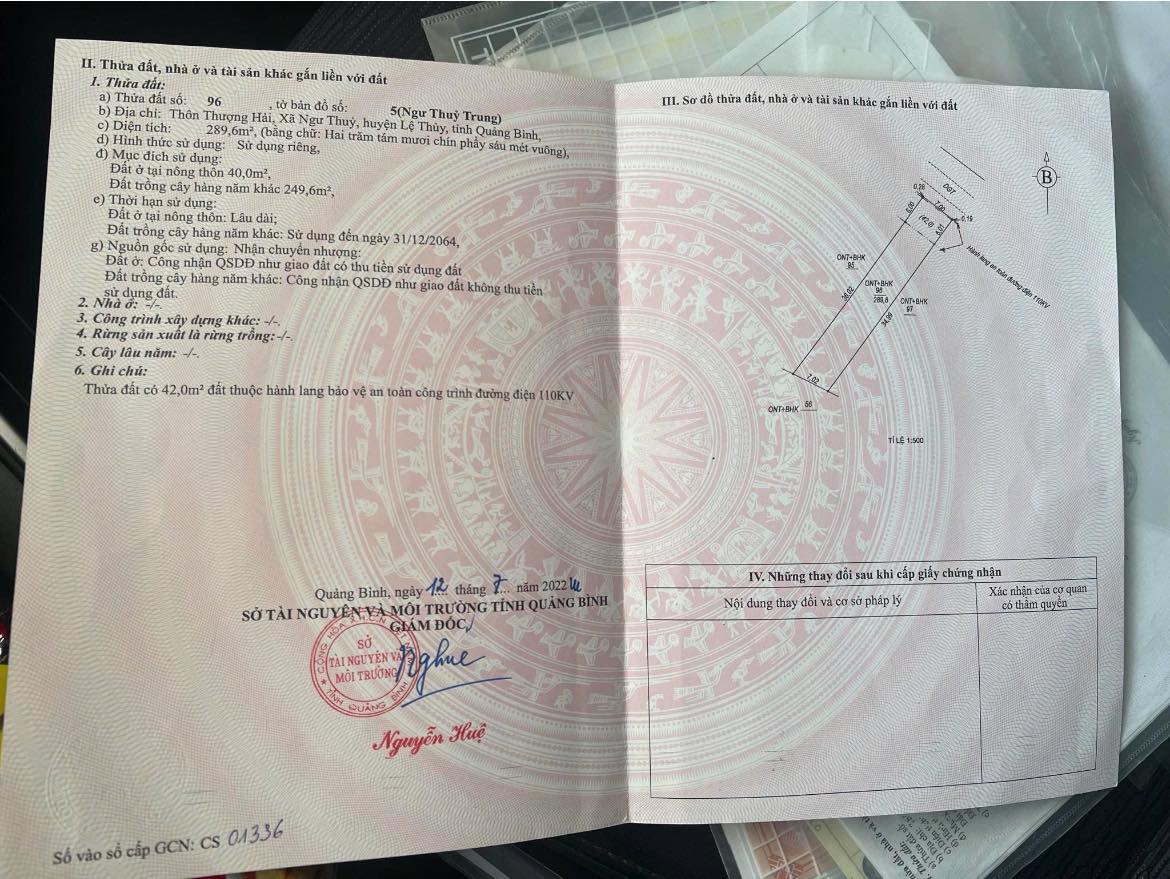 II. Thửa đất, nhà ở và tài sản khác gắn liền với đất
1. Thửa đất:
a) Thửa đất số: 96 , tờ bản đồ số: 5(Ngư Thuỷ Trung)
b) Địa chỉ: Thôn Thượng Hải, Xã Ngư Thuỷ, huyện Lệ Thủy, tỉnh Quảng Bình,
c) Diện tích: 289,6m², (bằng chữ: Hai trăm tám mươi chín phẩy sáu mét vuông),
d) Hình thức sử dụng: Sử dụng riêng,
đ) Mục đích sử dụng:
Đất ở tại nông thôn 40,0m²,
Đất trồng cây hàng năm khác 249,6m²,
e) Thời hạn sử dụng:
Đất ở tại nông thôn: Lâu dài;
Đất trồng cây hàng năm khác: Sử dụng đến ngày 31/12/2064,
g) Nguồn gốc sử dụng: Nhận chuyển nhượng:
Đất ở: Công nhận QSDĐ như giao đất có thu tiền sử dụng đất
Đất trồng cây hàng năm khác: Công nhận QSDĐ như giao đất không thu tiền
sử dụng đất.
2. Nhà ở: -/-.
3. Công trình xây dựng khác: -/-.
4. Rừng sản xuất là rừng trồng: -/-.
5. Cây lâu năm: -/-.
6. Ghi chú:
Thửa đất có 42,0m² đất thuộc hành lang bảo vệ an toàn công trình đường điện 110KV
Quảng Bình, ngày 12 tháng 7... năm 2022
SỞ TÀI NGUYÊN VÀ MÔI TRƯỜNG TỈNH QUẢNG BÌNH
GIÁM ĐỐC
CỘNG HÒA X.H.C.N VIỆT NAM
SỞ
TÀI NGUYÊN VÀ
MÔI TRƯỜNG
★ TỈNH QUẢNG BÌNH
Nghue
Nguyễn Huệ
Số vào sổ cấp GCN: CS 01336
III. Sơ đồ thửa đất, nhà ở và tài sản khác gắn liền với đất
B
DGT
0,28
7,00
0,19
6,00
(42,0)
6,01
Hành lang an toàn đường điện 110KV
ONT+BHK
95
ONT+BHK
96
289,6
ONT+BHK
97
34,99
7,02
ONT+BHK 56
TỈ LỆ 1:500
IV. Những thay đổi sau khi cấp giấy chứng nhận
Nội dung thay đổi và cơ sở pháp lý
Xác nhận của cơ quan
có thẩm quyền